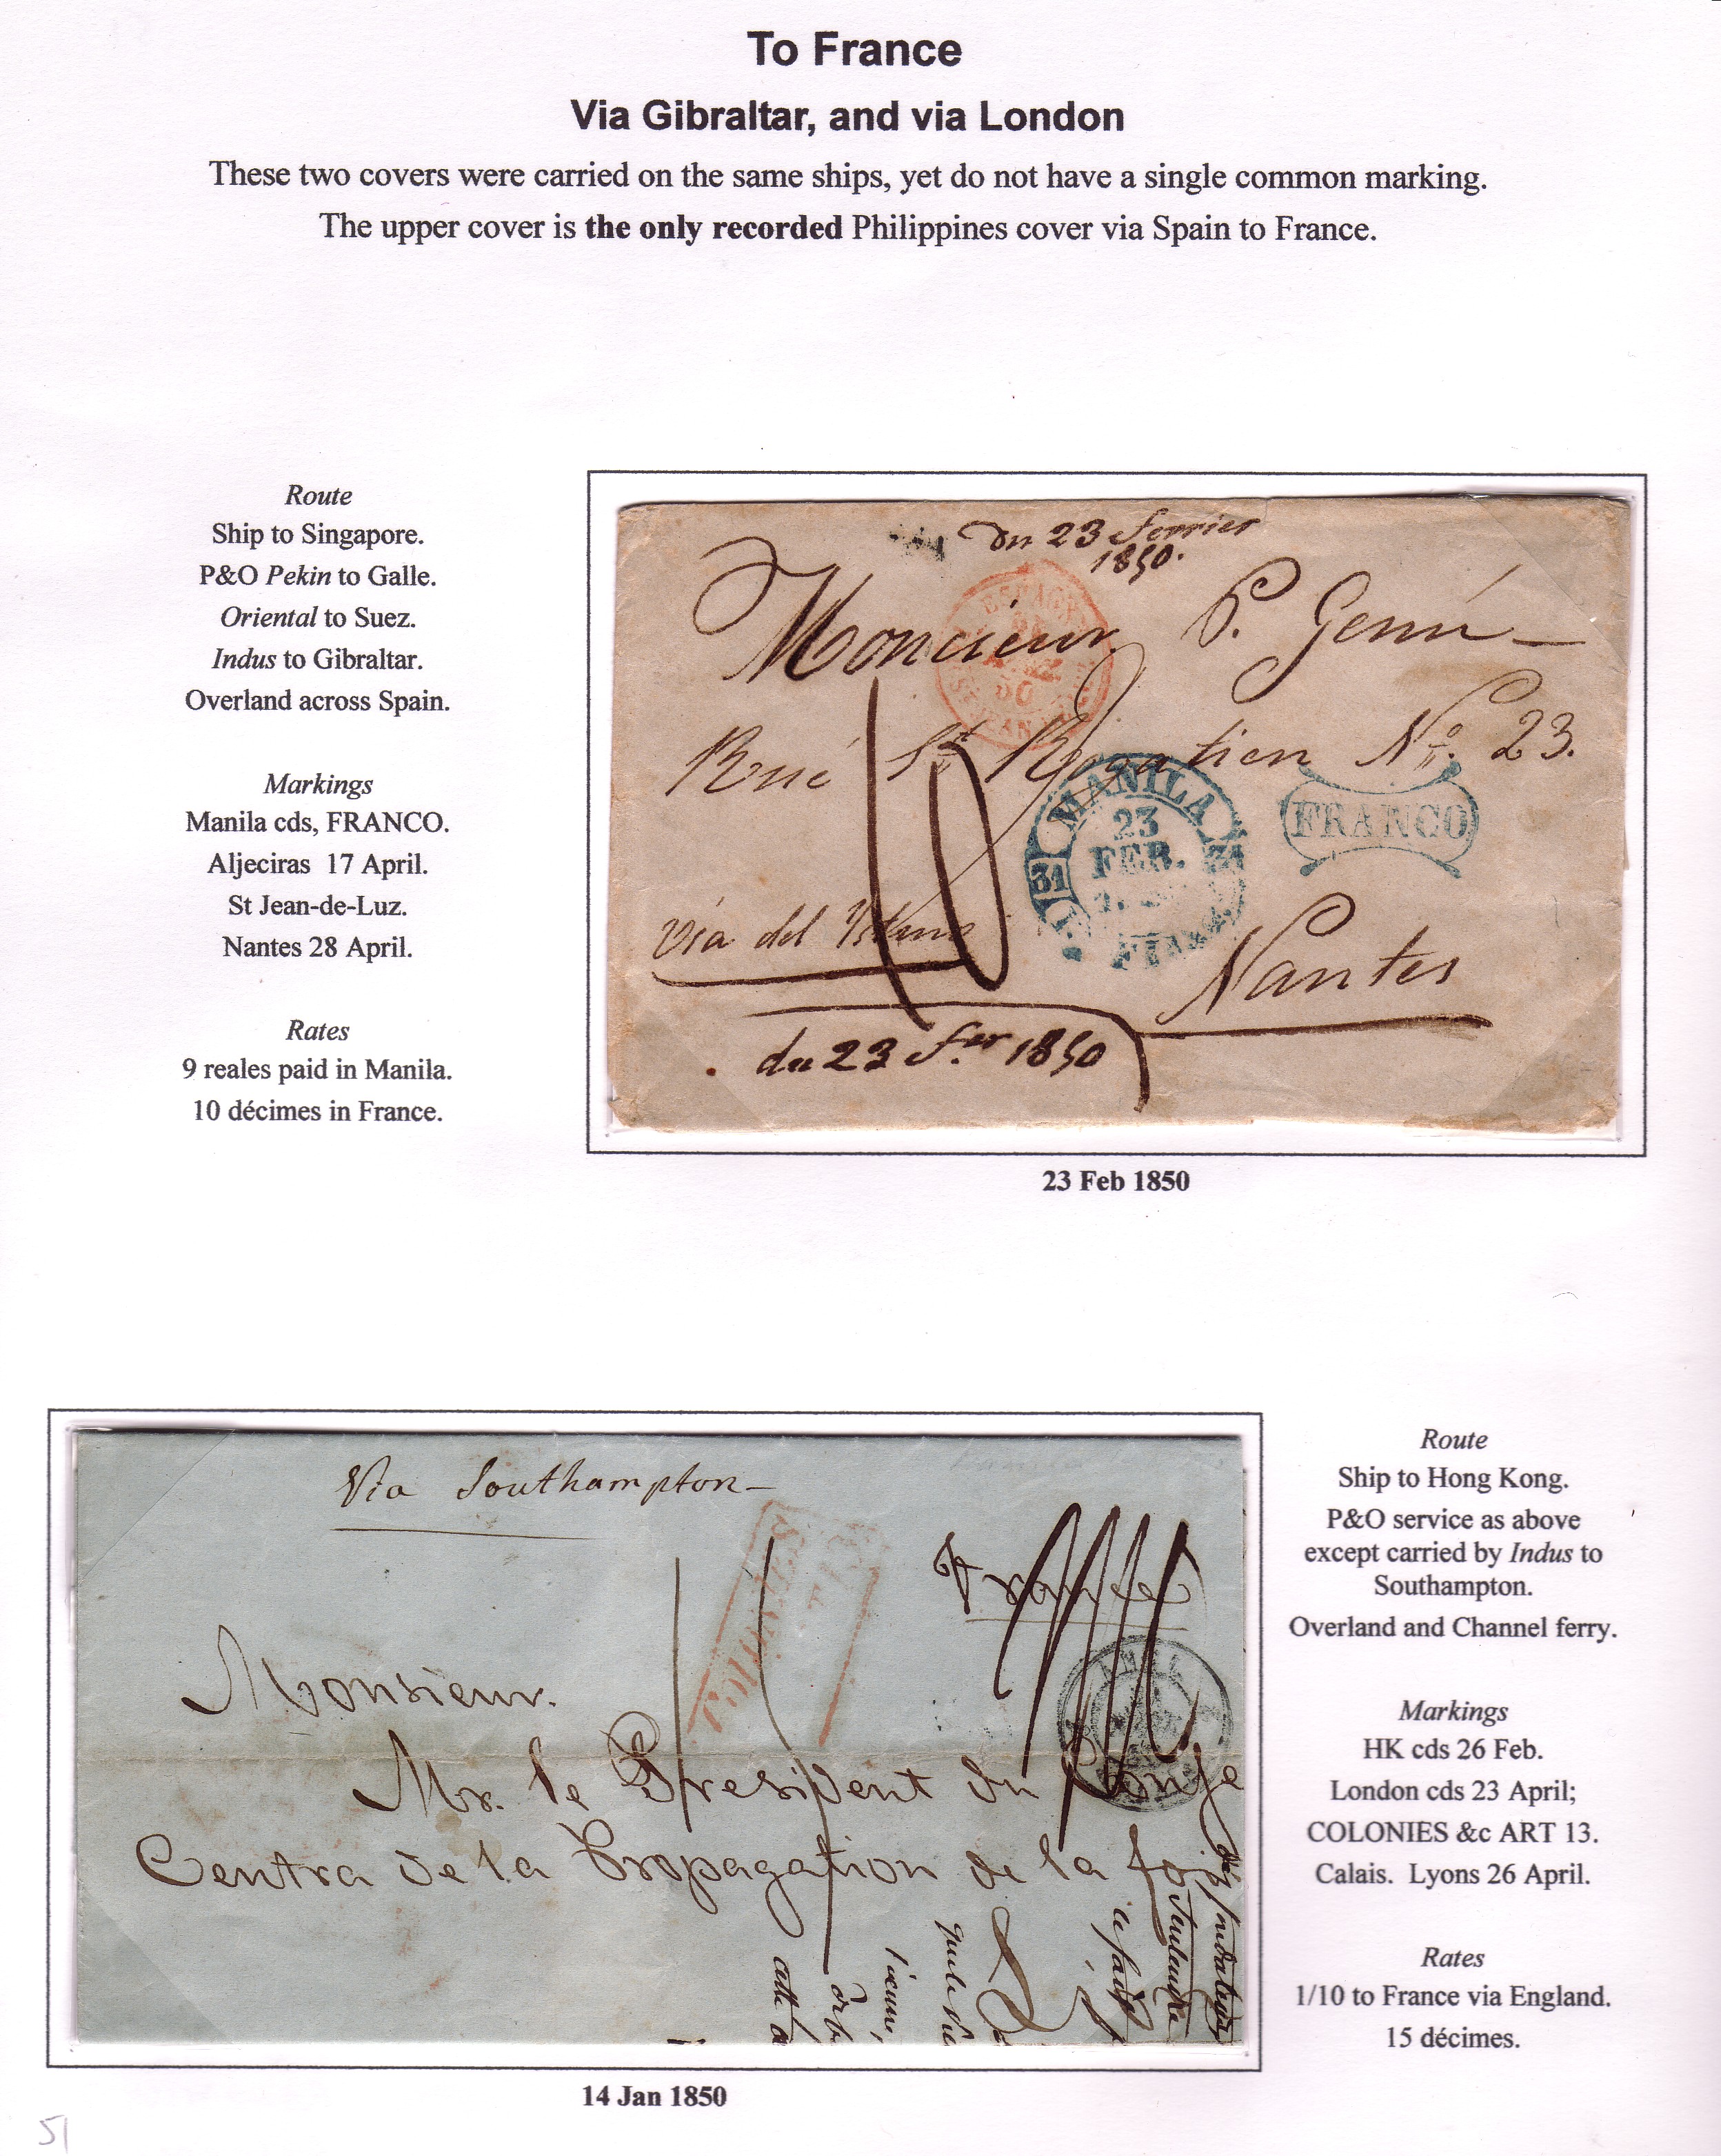 To France
Via Gibraltar, and via London
These two covers were carried on the same ships, yet do not have a single common marking.
The upper cover is the only recorded Philippines cover via Spain to France.
Route
Ship to Singapore.
P&O Pekin to Galle.
Oriental to Suez.
Indus to Gibraltar.
Overland across Spain.
Markings
Manila cds, FRANCO.
Aljeciras 17 April.
St Jean-de-Luz.
Nantes 28 April.
Rates
9 reales paid in Manila.
10 décimes in France.
du 23 fevrier
1850.
Moncieur P.
Rué St Rogatien No. 23.
MANILA
23
FEB.
31 31
FRANCO
10
Via del Istmo
Nantes
du 23 fer 1850
23 Feb 1850
Via Southampton
France
COLONIES
Monsieur.
Mr. le President du
Centra de la Propagation de la foi
14 Jan 1850
Route
Ship to Hong Kong.
P&O service as above
except carried by Indus to
Southampton.
Overland and Channel ferry.
Markings
HK cds 26 Feb.
London cds 23 April;
COLONIES &c ART 13.
Calais. Lyons 26 April.
Rates
1/10 to France via England.
15 décimes.
51